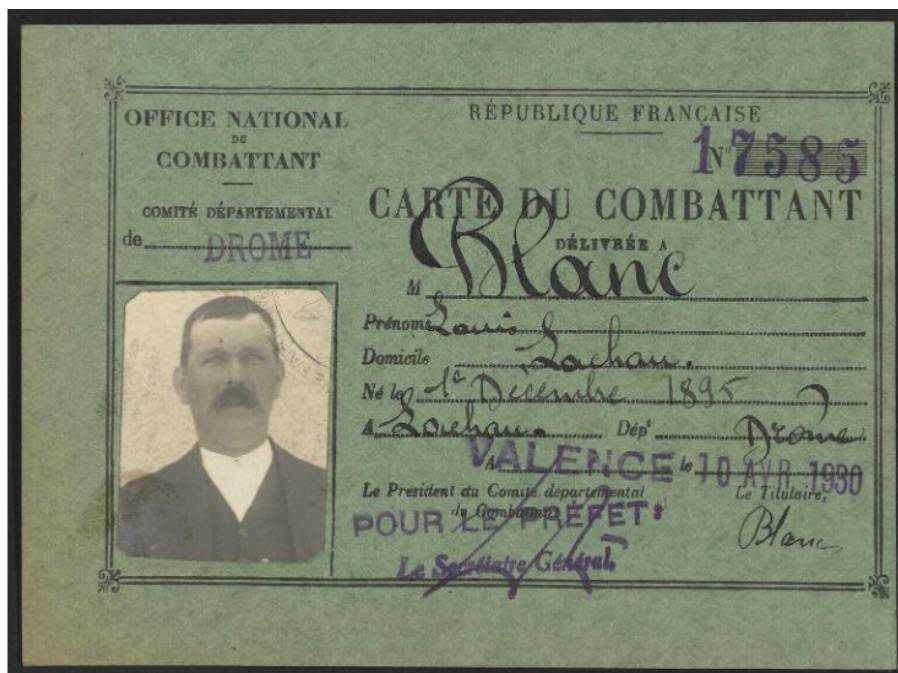 OFFICE NATIONAL
DU
COMBATTANT
COMITÉ DÉPARTEMENTAL
de DROME
RÉPUBLIQUE FRANÇAISE
N° 17585
CARTE DU COMBATTANT
DÉLIVRÉE A
M Blanc
Prénoms Louis
Domicile Lachau.
Né le 1er Décembre 1895
A Lachau. Dépt Drôme
A VALENCE le 10 AVR 1930
Le Président du Comité départemental
du Combattant
Le Titulaire,
POUR LE PRÉFET:
Blanc
Le Secrétaire Général,